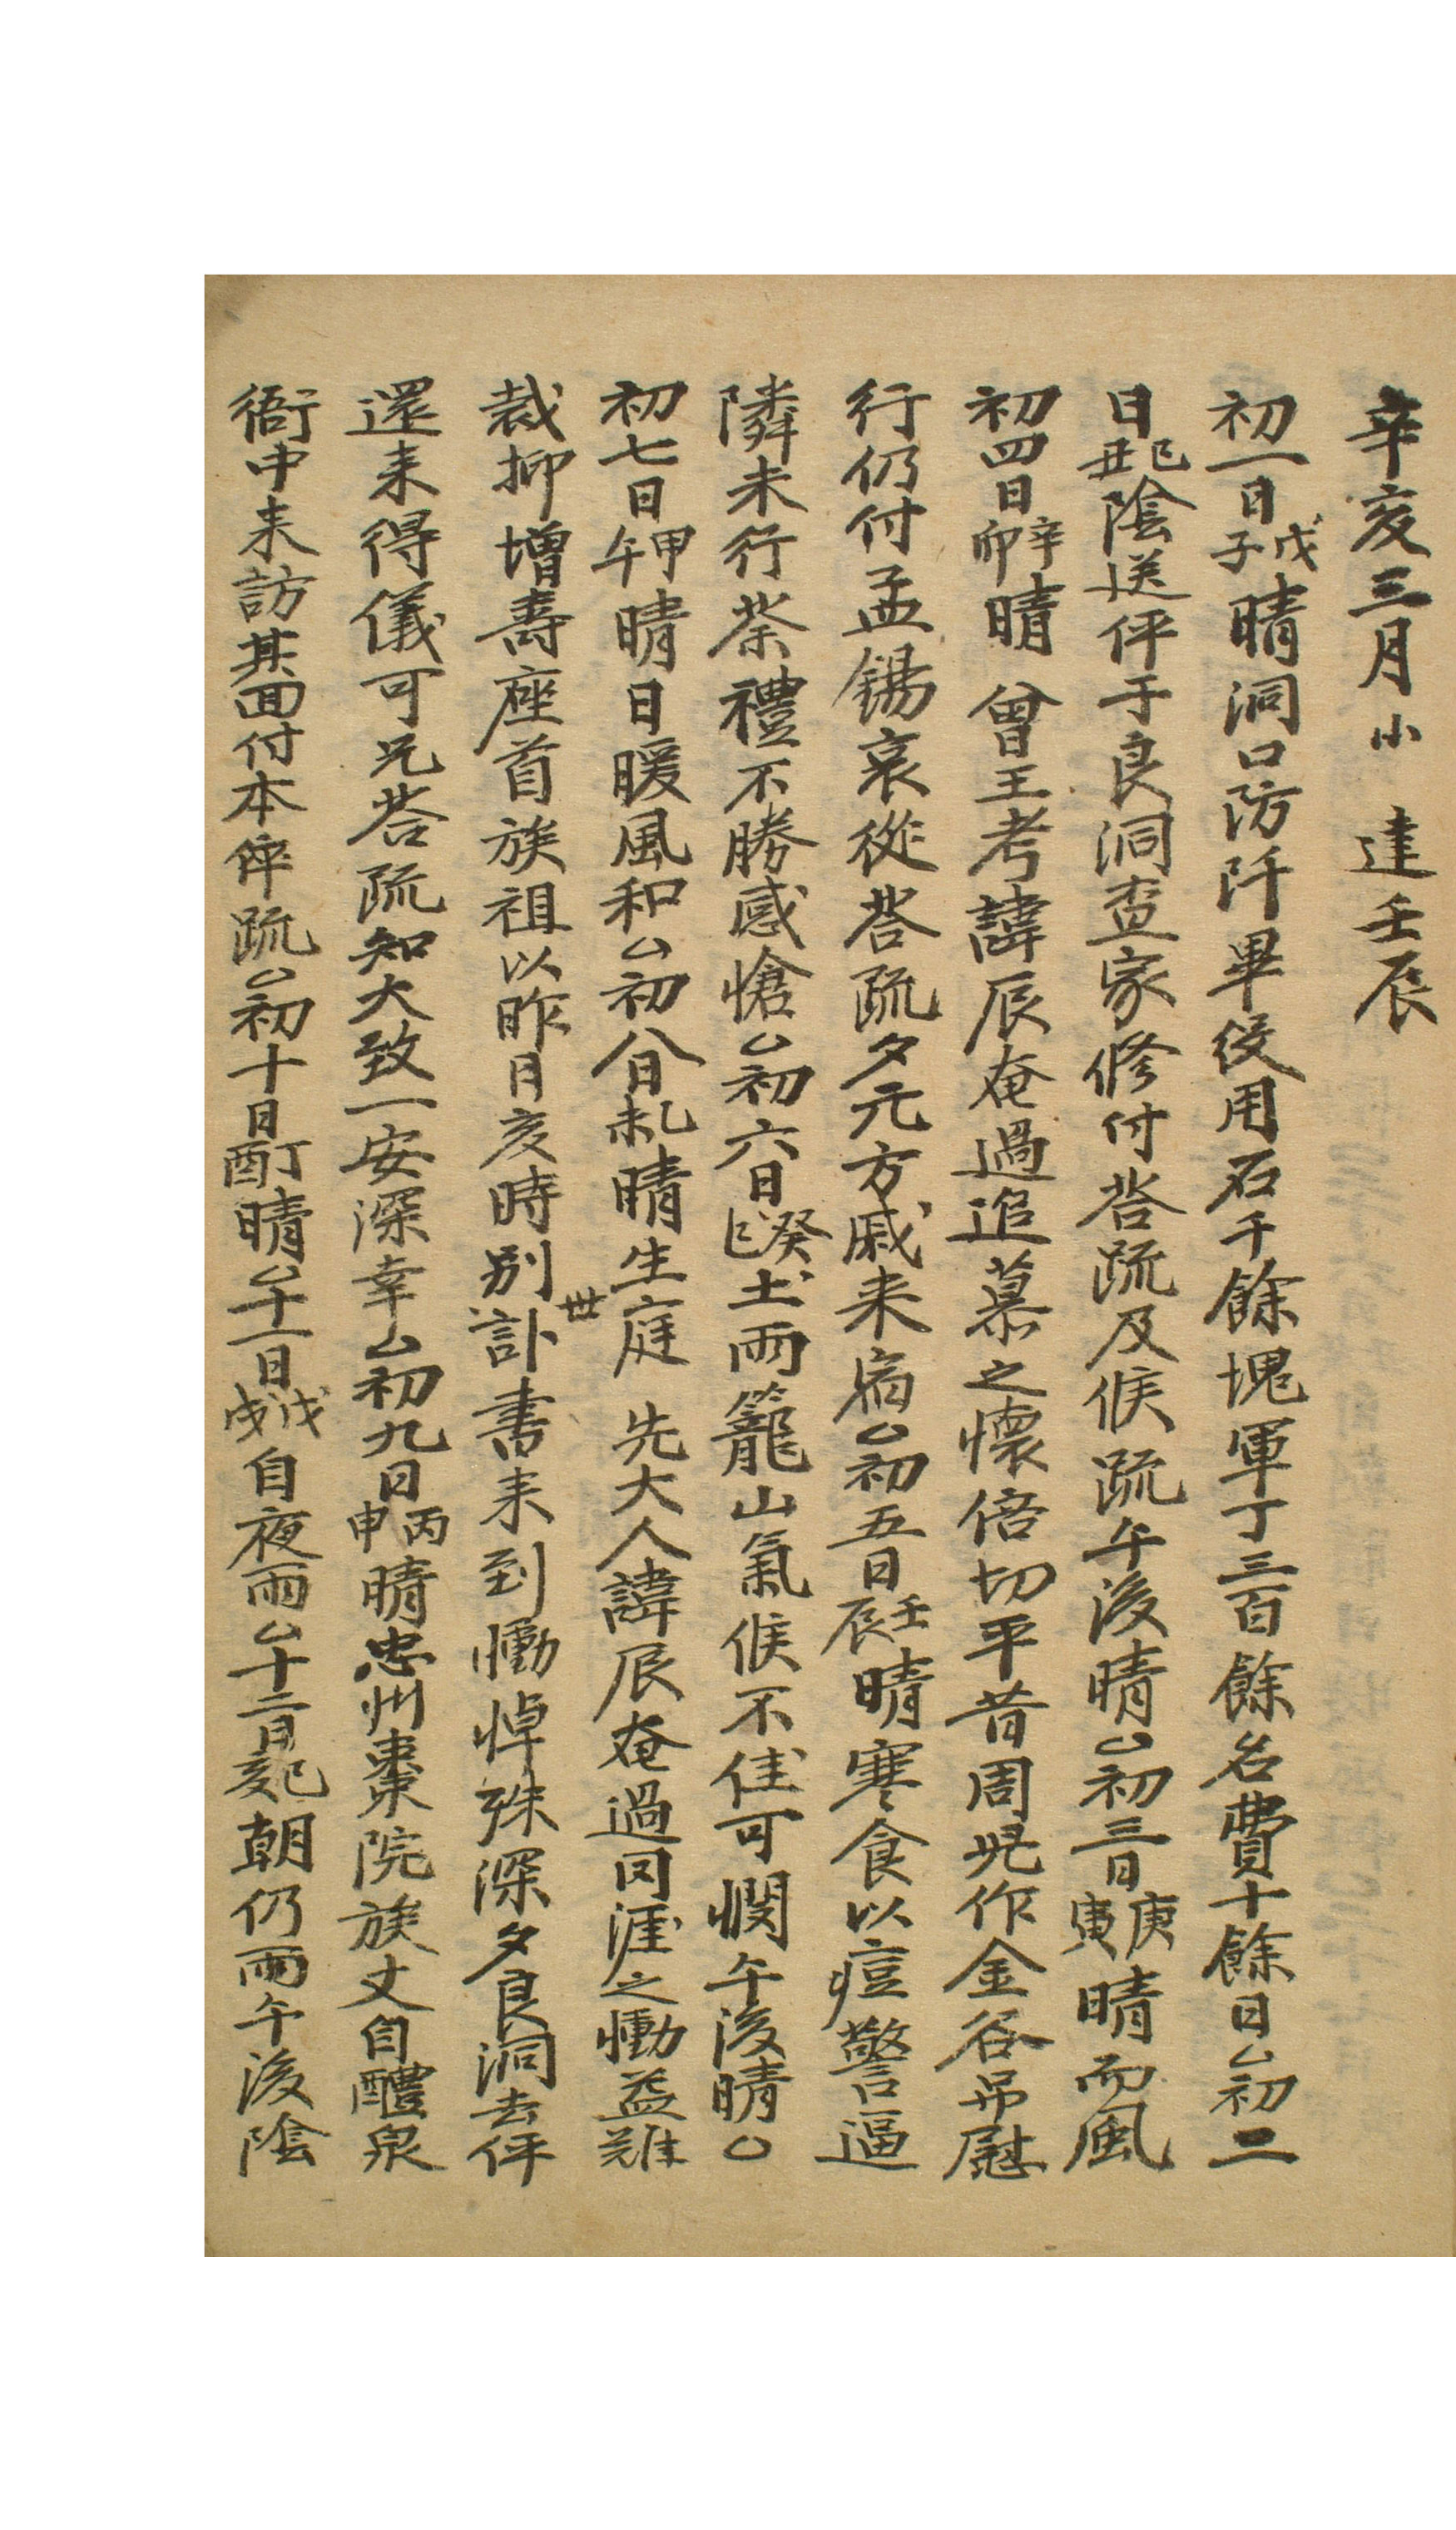 辛亥三月小 建壬辰
初一日戊子晴洞口防阡畢役用石千餘塊軍丁三百餘名費十餘日○初二
日己丑陰送伻于良洞查家修付答疏及候疏午後晴○初三日庚寅晴而風
初四日辛卯晴 曾王考諱辰奄過追慕之懷倍切平昔周児作金谷吊慰
行仍付孟錫哀從答疏夕元方戚来宿○初五日壬辰晴寒食以痘警逼
隣未行茶禮不勝感愴○初六日癸巳土雨籠山氣候不佳可憫午後晴○
初七日甲午晴日暖風和○初八日乙未晴生庭 先大人諱辰奄過同涯之慟益難
裁抑增壽座首族祖以昨日亥時別世訃書来到慟悼殊深夕良洞去伻
還来得儀可兄答疏知大致一安深幸○初九日丙申晴忠州棗院族丈自醴泉
衙中来訪其回付本倅疏○初十日丁酉晴○十一日戊戌自夜雨○十二日己亥朝仍雨午後陰